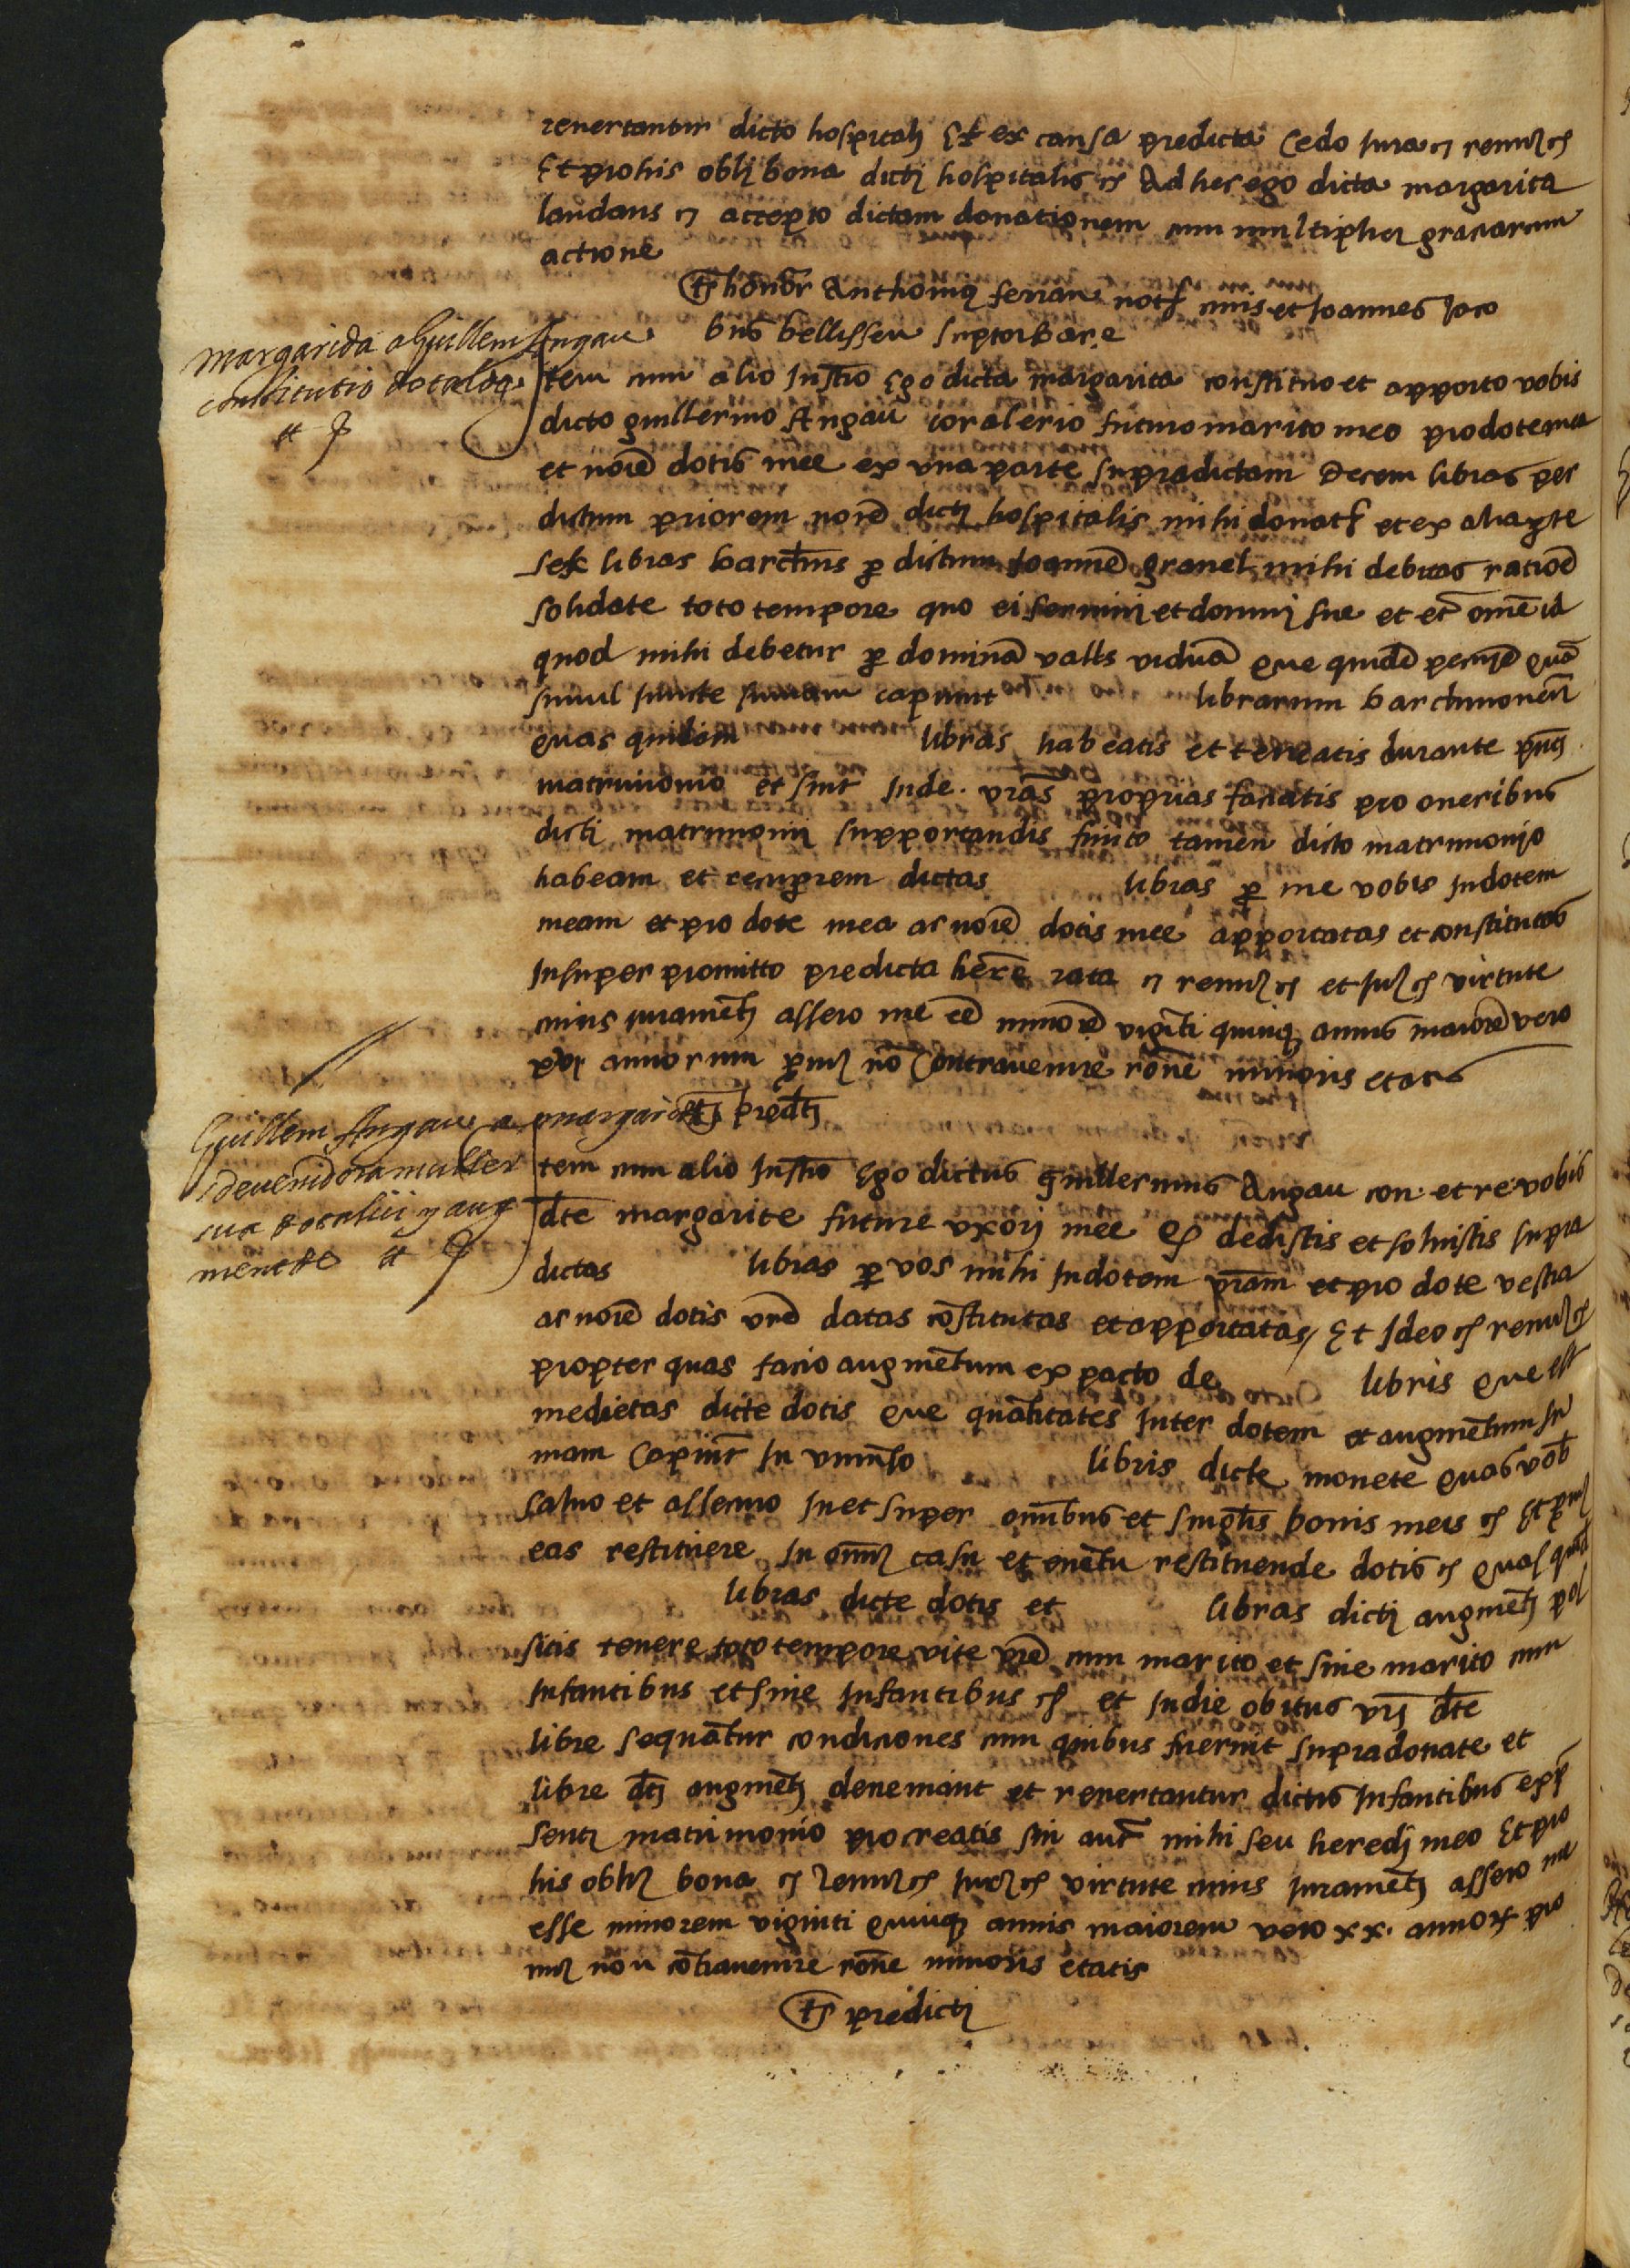 revertantur dicto hospitali Et ex causa predicta Cedo Jura etc renuntio etc
Et pro his obli bona dicti hospitalis etc Ad hec ego dicta margarita
laudans etc accepto dictam donationem cum multiplici graciarum
actione
ts honor Anthonius ferran not civis et Joannes Jaco
bus bellisseu scriptor Bar.e
Margarida a Guillem Angau
constitutio dotalis
et P
Item cum alio Instro Ego dicta margarita constituo et apporto vobis
dicto guillermo Angau coralerio futuro marito meo pro dote mea
et noie dotis mee ex una parte supradictam Decem libras per
dictum priorem noie dicti hospitalis mihi donat et ex alia parte
sex libras barchns per dictum Joanne granel mihi debitas ratioe
solidate toto tempore quo ei servivi et domui sue et et ome id
quod mihi debetur per domina valls vidua que quide pecunie qua
simul juncte sumam capiunt librarum barchinonen
quas quidem libras habeatis et teneatis durante pnti
matrimonio et sint Inde vras proprias faciatis pro oneribus
dicti matrimonii supportandis finito tamen dicto matrimonio
habeam et recuperem dictas libras per me vobis In dotem
meam et pro dote mea ac noie dotis mee apportatas et constitutas
Insuper promitto predicta here rata etc renun etc et Jur etc virtute
cuius Jurameti assero me ee minore viginti quinq annis maiore vero
annorum prom no Contravenire rone minoris etatis
ts predti
Guillem Angau a margarita
sdevenidora muller
sua dotalici y aug
mentde et P
Item cum alio Instro Ego dictus guillermus Angau con et re vobis
dte margarite future uxori mee q dedistis et solvistis supra
dictas libras per vos mihi In dotem vram et pro dote vestra
ac noie dotis vre datas costitutas et apportatas Et Ideo etc renun etc
propter quas facio augmetum ex pacto de libris que est
medietas dicte dotis que quatitates Inter dotem et augmetum su
mam Capiut In universo libris dicte monete quas vob
salvo et assecuro In et super omibus et singlis bonis meis etc Et prom
eas restituere In omi casu et evetu restituende dotis etc quas quid
libras dicte dotis et libras dicti augmeti pos
sitis tenere toto tempore vite vre cum marito et sine marito cum
Infantibus et sine Infantibus etc et In die obitus vri dte
libre sequatur condiciones cum quibus fuerunt supra donate et
libre dti augmeti deveniant et revertantur dictis Infantibus ex pre
senti matrimonio procreatis sin aut mihi seu heredi meo Et pro
his oblig bona etc renun etc Jur etc virtute cuius Jurameti assero me
esse minorem viginti quinq annis maiorem vero xx. annor pro
mi non cotravenire rone minoris etatis
ts predicti